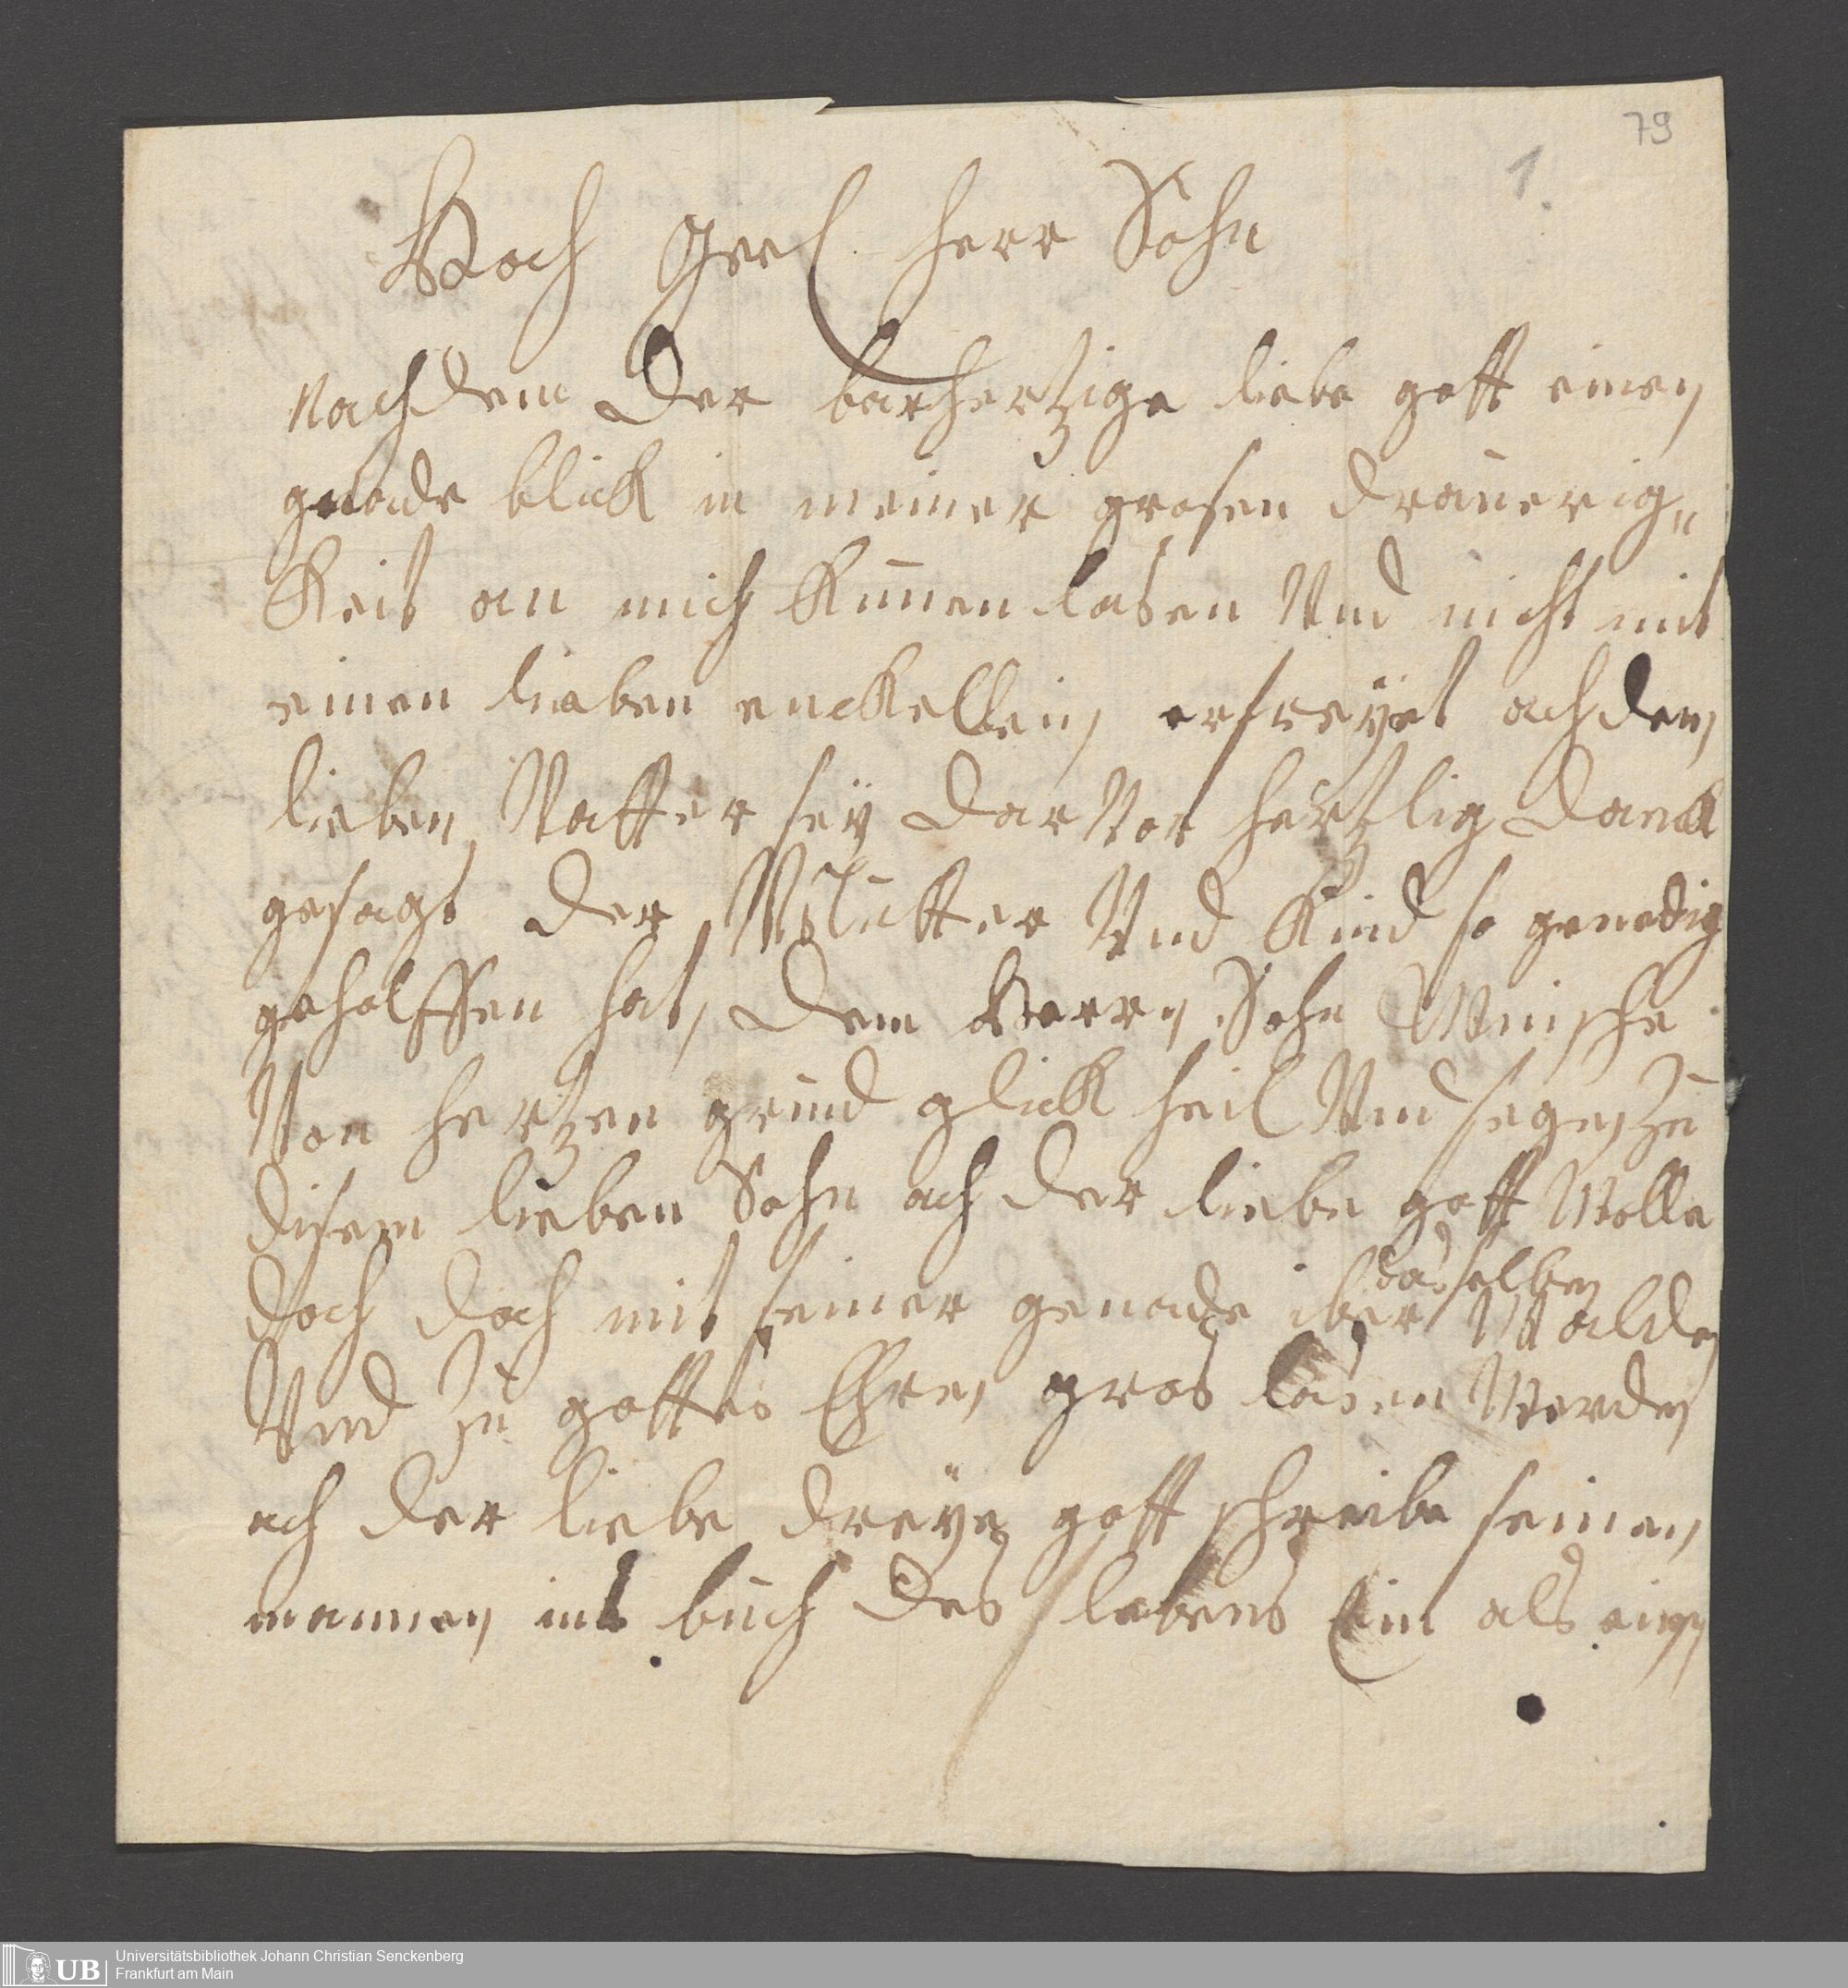 79
1.
Hoch Geel. herr Sohn
Nach dem der barhertzige liebe gott einen
genade blick in meiner grosen drauerig„
keit an mich kumen lasen Und nicht mit
einen lieben enckellein erfreÿet ach den
lieben Vatter seÿ dar Vor hertzlig danck
gesagt der Mutter Und Kind so genedig
geholffen hat, dem Herrn Sohn Winsche
Von hertzen grund glick heil Und segen zu
disem lieben Sohn ach der liebe gott Wolle
doch doch mit seiner genade iber daselben Walden
Und zu gottes Ehren gros lasen Werden
ach der liebe dreÿe gott schreibe seinen
nammen ins buch des lebens Ein als einen
UB Universitätsbibliothek Johann Christian Senckenberg
Frankfurt am Main